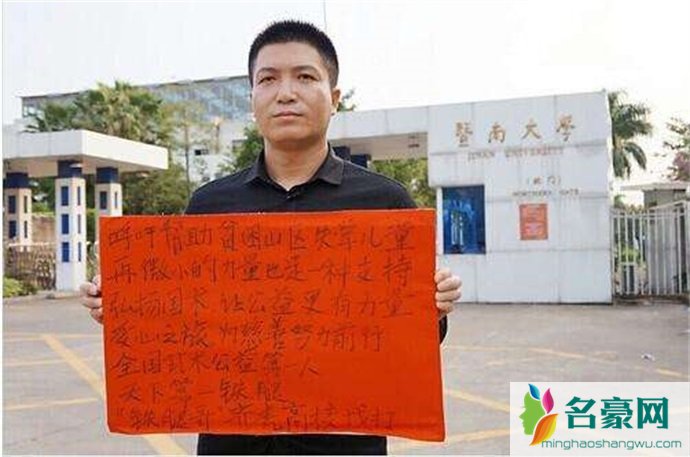 暨南大學
JINAN UNIVERSITY
(北门)
NORTHERN GATE
呼吁帮助贫困山区失学儿童
再微小的力量也是一种支持
弘扬国术 让公益更有力量
爱心之旅 为慈善努力前行
全国武术公益第一人
天下第一铁腿
"铁腿哥" 高校
名豪网
minghaoshangwu.com